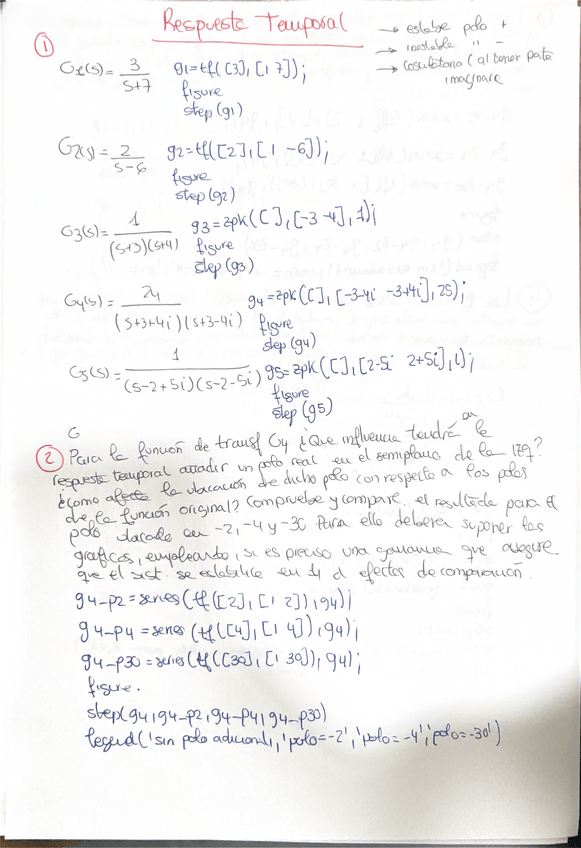 Respuesta Temporal
→ estable polo +
→ inestable " -
→ (al tener parte
imaginare
1
G1(s)= 3 / s+7 g1=tf([3],[1 7]);
figure
step(g1)
G2(s)= 2 / s-6 g2=tf([2],[1 -6]);
figure
step(g2)
G3(s)= 1 / (s+3)(s+4) g3=zpk([],[-3 -4],1);
figure
step(g3)
G4(s)= 24 / (s+3+4i)(s+3-4i) g4=zpk([],[-3-4i -3+4i],25);
figure
step(g4)
G5(s)= 1 / (s-2+5i)(s-2-5i) g5=zpk([],[2-5i 2+5i],1);
figure
step(g5)
G
2 Para la función de transf G4 ¿Que influencia tendrá en la
respuesta temporal añadir un polo real en el semiplano de la izq?
¿como afecta la ubicación de dicho polo con respecto a los polos
de la función original? Compruebe y compare el resultado para el
polo ubicado en -2, -4 y -30 Para ello debera suponer las
graficas, empleando, si es preciso una ganancia que asegure
que el sist. se estabilice en 1 a efectos de comparación.
g4-p2=series(tf([2],[1 2]),g4);
g4-p4=series(tf([4],[1 4]),g4);
g4-p30=series(tf([30],[1 30]),g4);
figure.
step(g4,g4-p2,g4-p4,g4-p30)
legend('sin polo adicional,'polo=-2','polo=-4','polo=-30')